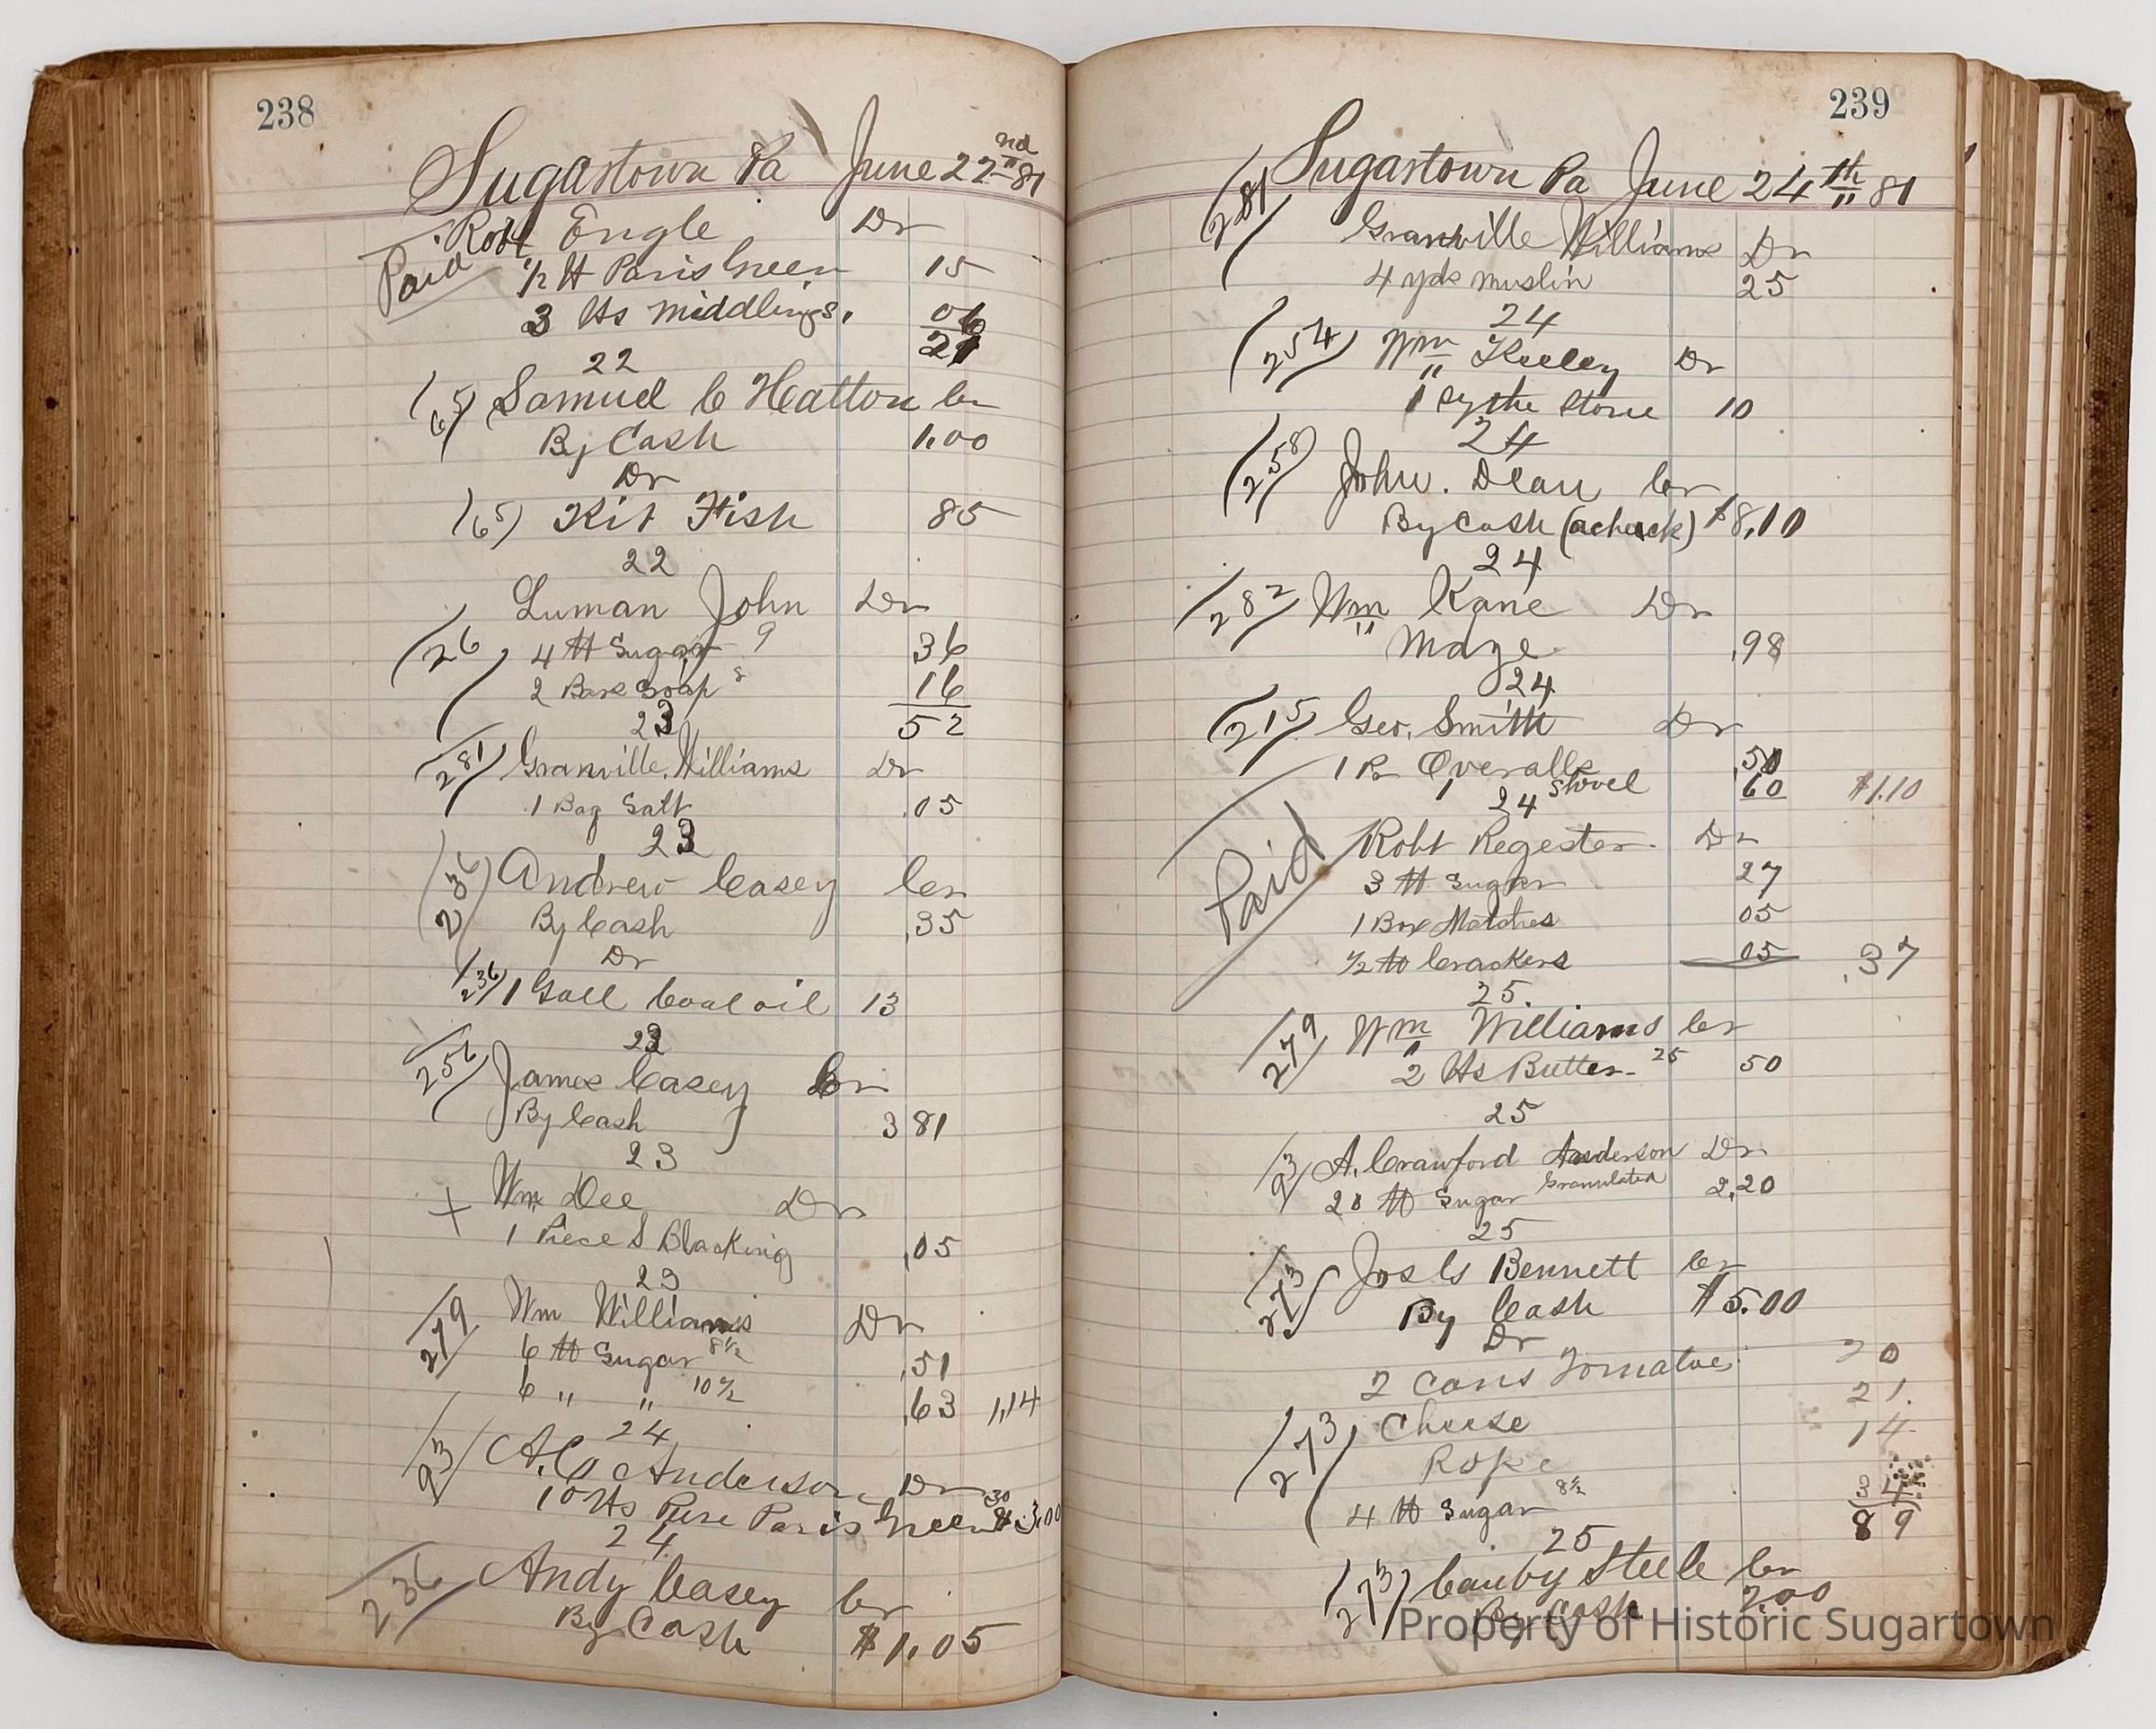 238
Sugartown Pa June 22nd 81
Paid
Robt Engle Dr
1/2 lb Paris Green 15
3 lbs middlings. 06
21
22
(65) Samuel C Hatton Cr
By Cash 1.00
Dr
(65) Kit Fish 85
22
Luman John Dr
(26) 4 lb Sugar 9 36
2 Bars Soap 8 16
23 52
(281) Granville Williams Dr
1 Bag Salt .05
23
(236) Andrew Casey Cr
By Cash .35
Dr
(236) 1 Gall Coal oil 13
23
(256) James Casey Cr
By Cash 3 81
23
+ Wm Dee Dr
1 Piece S Blacking .05
23
279 Wm Williams Dr
6 lb Sugar 8 1/2 .51
6 " " 10 1/2 .63 1,14
24
93 A.C. Anderson Dr
10 lbs Pure Paris Green 30 $3.00
24
236 Andy Casey Cr
By Cash $1.05
239
Sugartown Pa June 24th 81
281 Granville Williams Dr
4 yds muslin 25
24
(254) Wm Keeley Dr
1 Sythe Stone 10
24
(258) John. Dean Cr
By Cash (a check) $8.10
24
(282) Wm Kane Dr
Mdze .98
24
(215) Geo. Smith Dr
1 Pr Overalls .50
1 Shovel 60 $1.10
24
Paid
Robt Regester Dr
3 lb Sugar 27
1 Box Matches 05
1/2 lb Crackers 05 .37
25.
279 Wm Williams Cr
2 lbs Butter 25 50
25
93 A. Crawford Anderson Dr
20 lb Sugar Granulated 2.20
25
273 Jos Bennett Cr
By Cash $5.00
Dr
2 Cans Tomatoes 20
(273) Cheese 21.
Rope 14
4 lb Sugar 8 1/2 34
89
25
(273) Canby Steele Cr
By Cash 2.00
Property of Historic Sugartown